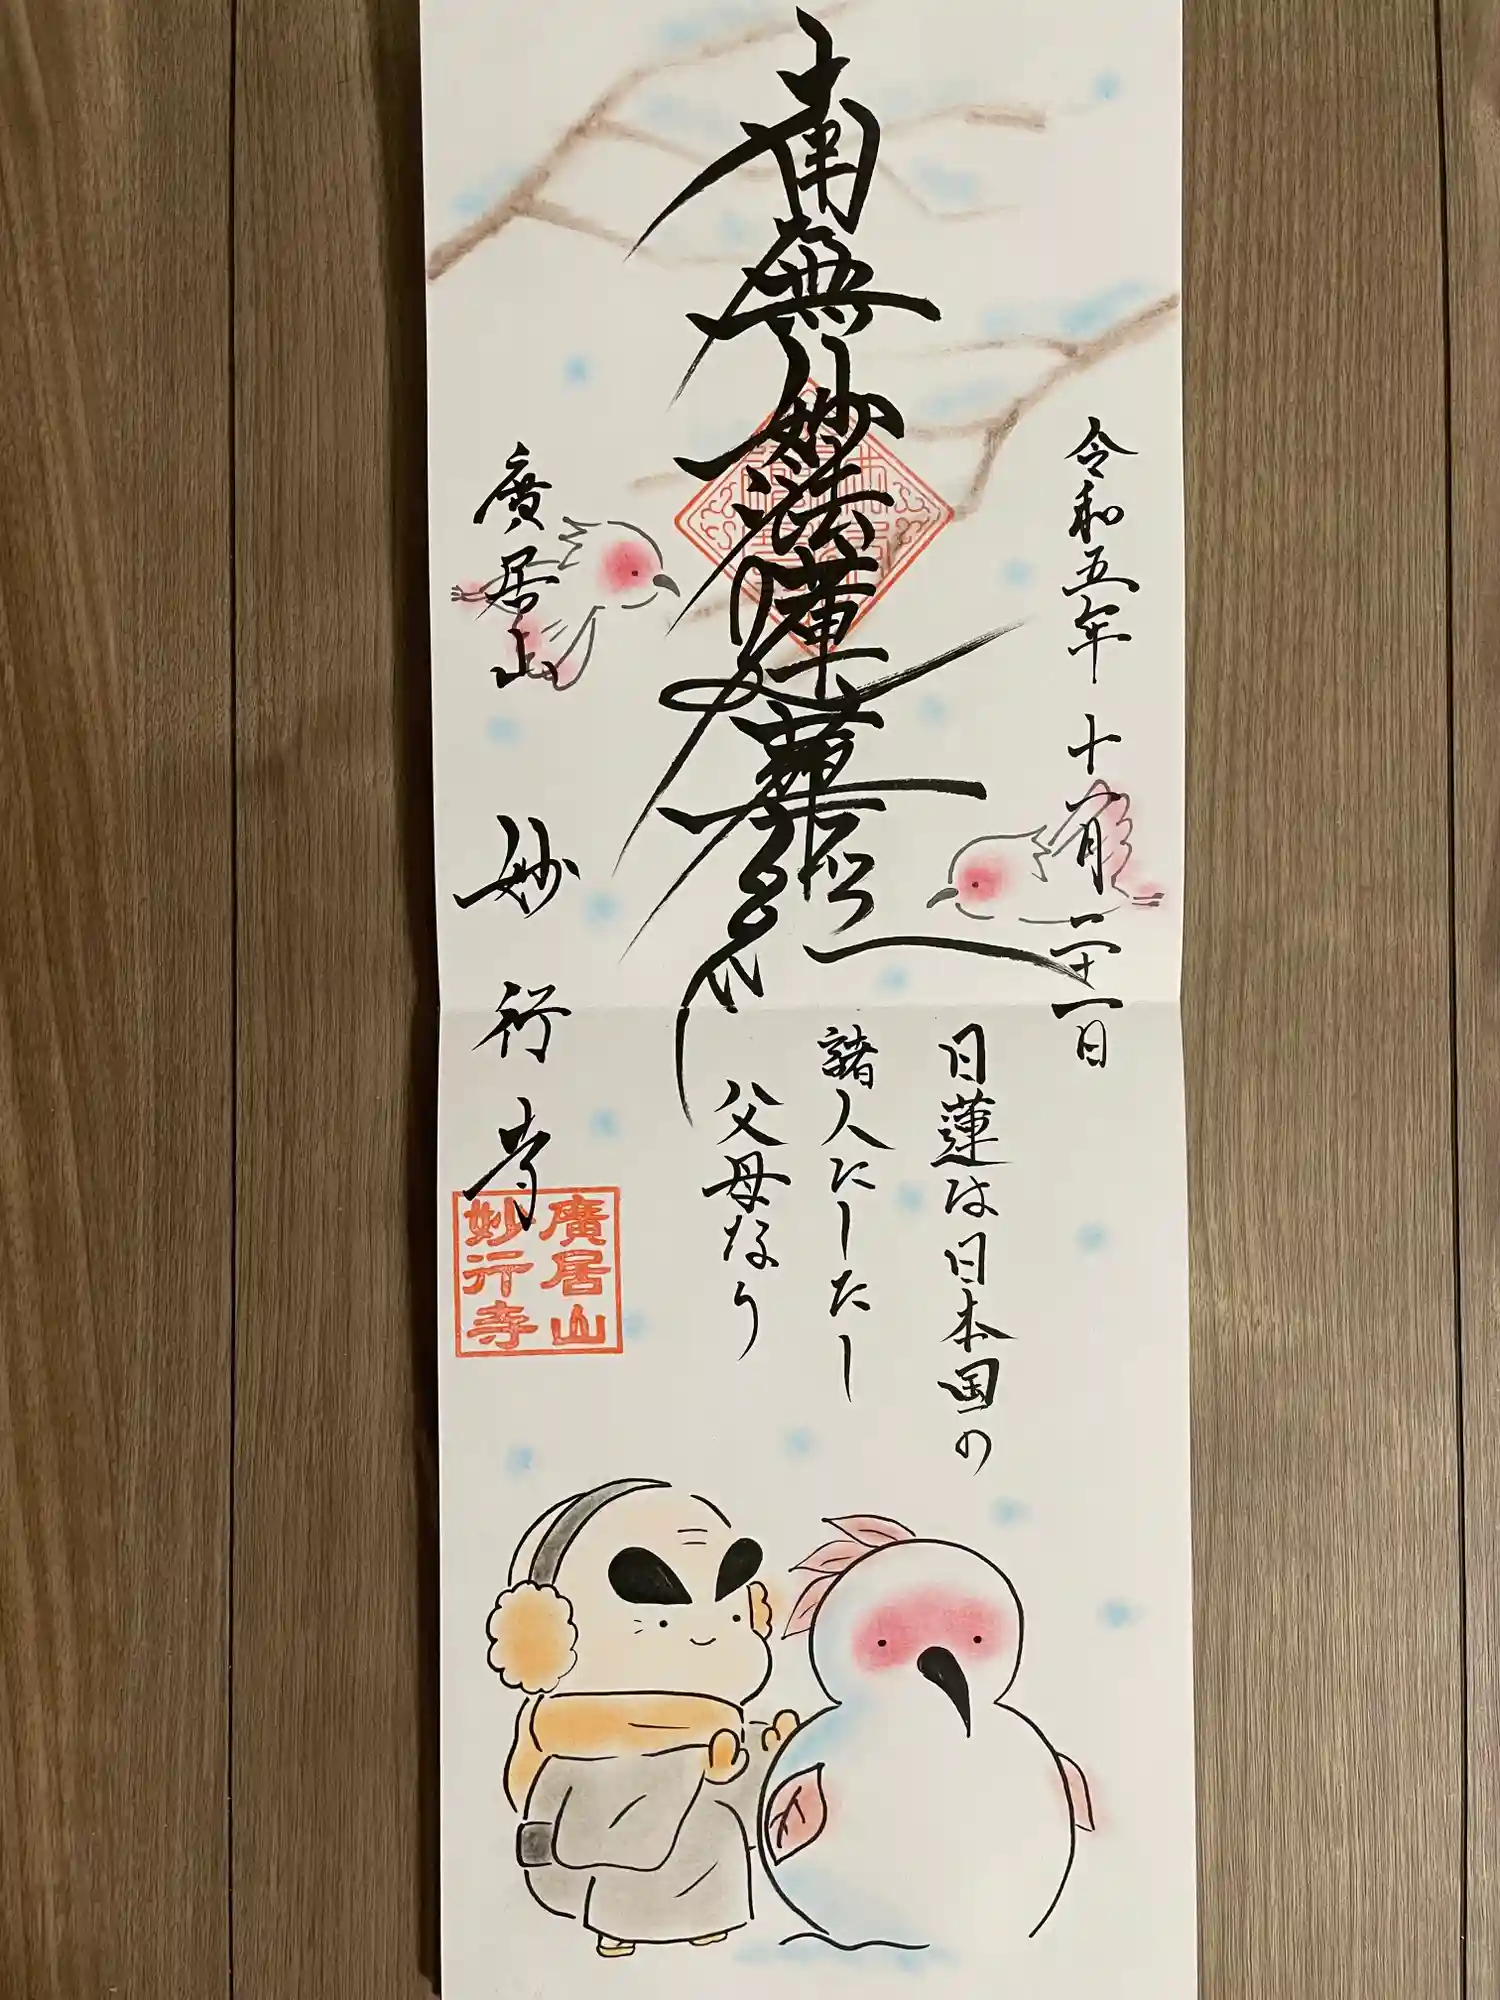 令和五年 十一月二十一日
南無妙法蓮華経
日蓮は日本国の
諸人にしたし
父母なり
廣居山 妙行寺
廣居山
妙行寺